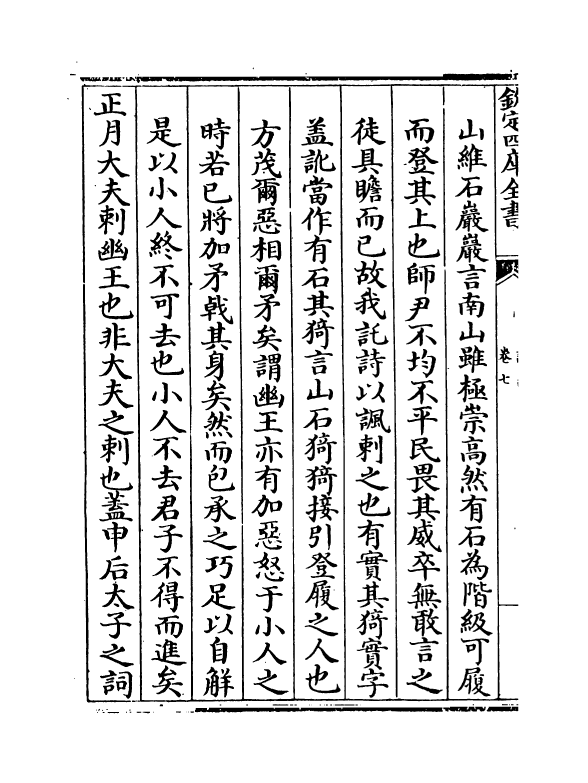 欽定四庫全書
卷七
山維石巖巖言南山雖極崇高然有石為階級可履
而登其上也師尹不均不平民畏其威卒無敢言之
徒具瞻而已故我託詩以諷刺之也有實其猗實字
盖訛當作有石其猗言山石猗猗接引登履之人也
方茂爾惡相爾矛矣謂幽王亦有加惡怒于小人之
時若已將加矛戟其身矣然而包承之巧足以自解
是以小人終不可去也小人不去君子不得而進矣
正月大夫刺幽王也非大夫之刺也蓋申后太子之詞